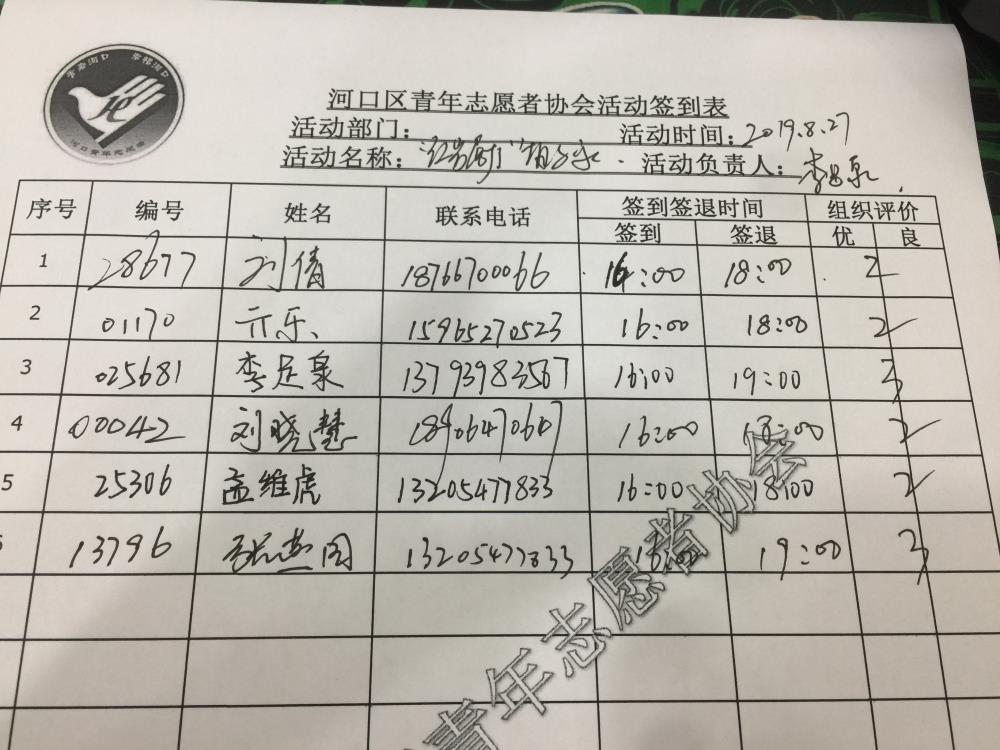 河口区青年志愿者协会活动签到表
活动部门： 活动时间：2019.8.27
活动名称： 活动负责人：
序号 编号 姓名 联系电话 签到签退时间 组织评价
签到 签退 优 良
1 28677 刘倩 18766700066 16:00 18:00 2
2 01170 亓乐 15965270523 16:00 18:00 2
3 025681 李足泉 13793983567 16:00 19:00 3
4 00042 刘晓慧 18406470647 16:00 18:00 2
5 25306 孟维虎 13205477833 16:00 18:00 2
13796 13205477833 19:00 3
青年志愿者协会